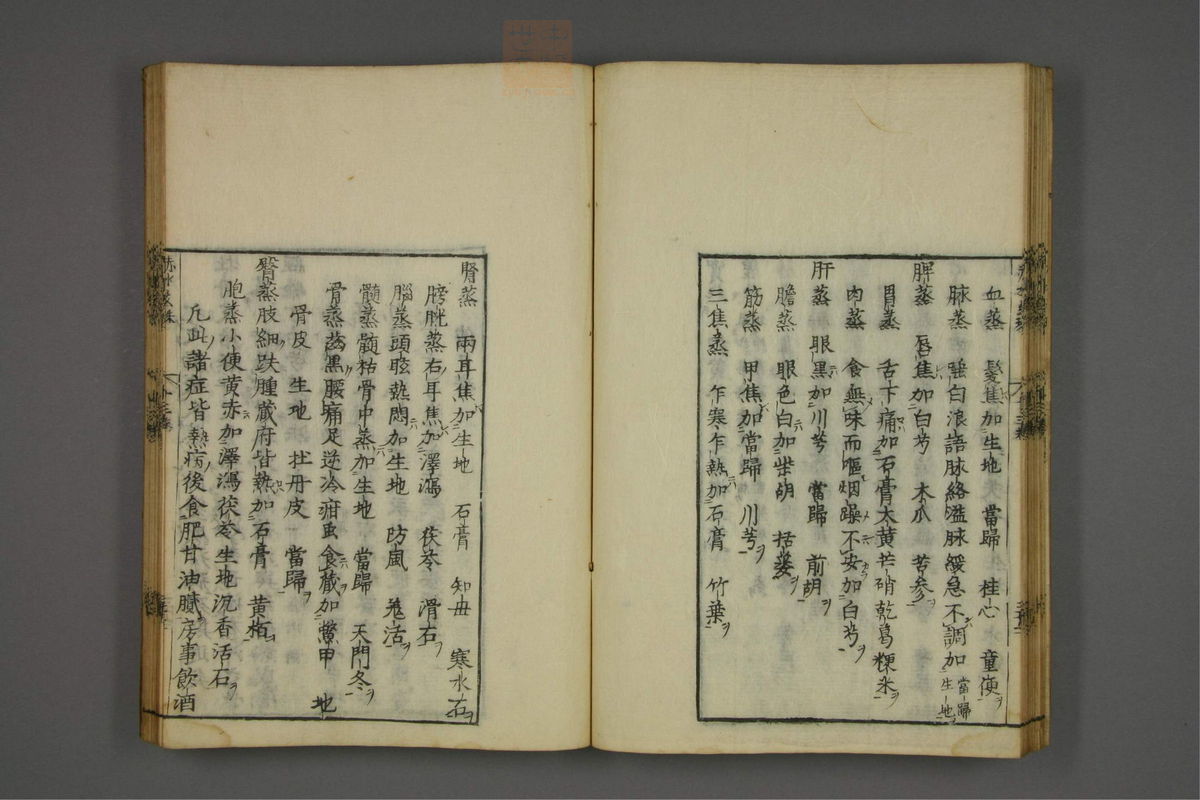 血蒸 髮焦加生地 當歸 桂心 童便ヲ
脉蒸 唾白浪語脉絡溢脉緩急不調加當歸生地ヲ
脾蒸 唇焦加白芍 木瓜 苦參ヲ
胃蒸 舌下痛加石膏大黃芒硝乾葛粳米ヲ
肉蒸 食無味而嘔烟躁不安加白芍ヲ
肝蒸 眼黑加川芎 當歸 前胡ヲ
膽蒸 眼色白加柴胡 括蔞ヲ
筋蒸 甲焦加當歸 川芎ヲ
三焦蒸 乍寒乍熱加石膏 竹葉ヲ
腎蒸 兩耳焦加生地 石膏 知毋 寒水石ヲ
膀胱蒸右耳焦加澤瀉 茯苓 滑石ヲ
腦蒸頭眩熱悶加生地 防風 羗活ヲ
髓蒸髓枯骨中蒸加生地 當歸 天門冬ヲ
骨蒸齒黑腰痛足逆冷疳虫食蔵加鱉甲 地
骨皮 生地 牡丹皮 當歸ヲ
臀蒸肢細趺腫蔵府皆熱加石膏 黃栢
胞蒸小便黃赤加澤瀉茯苓生地沉香活石ヲ
凡此諸症皆熱病後食肥甘油膩房事飲酒
赤水玄珠